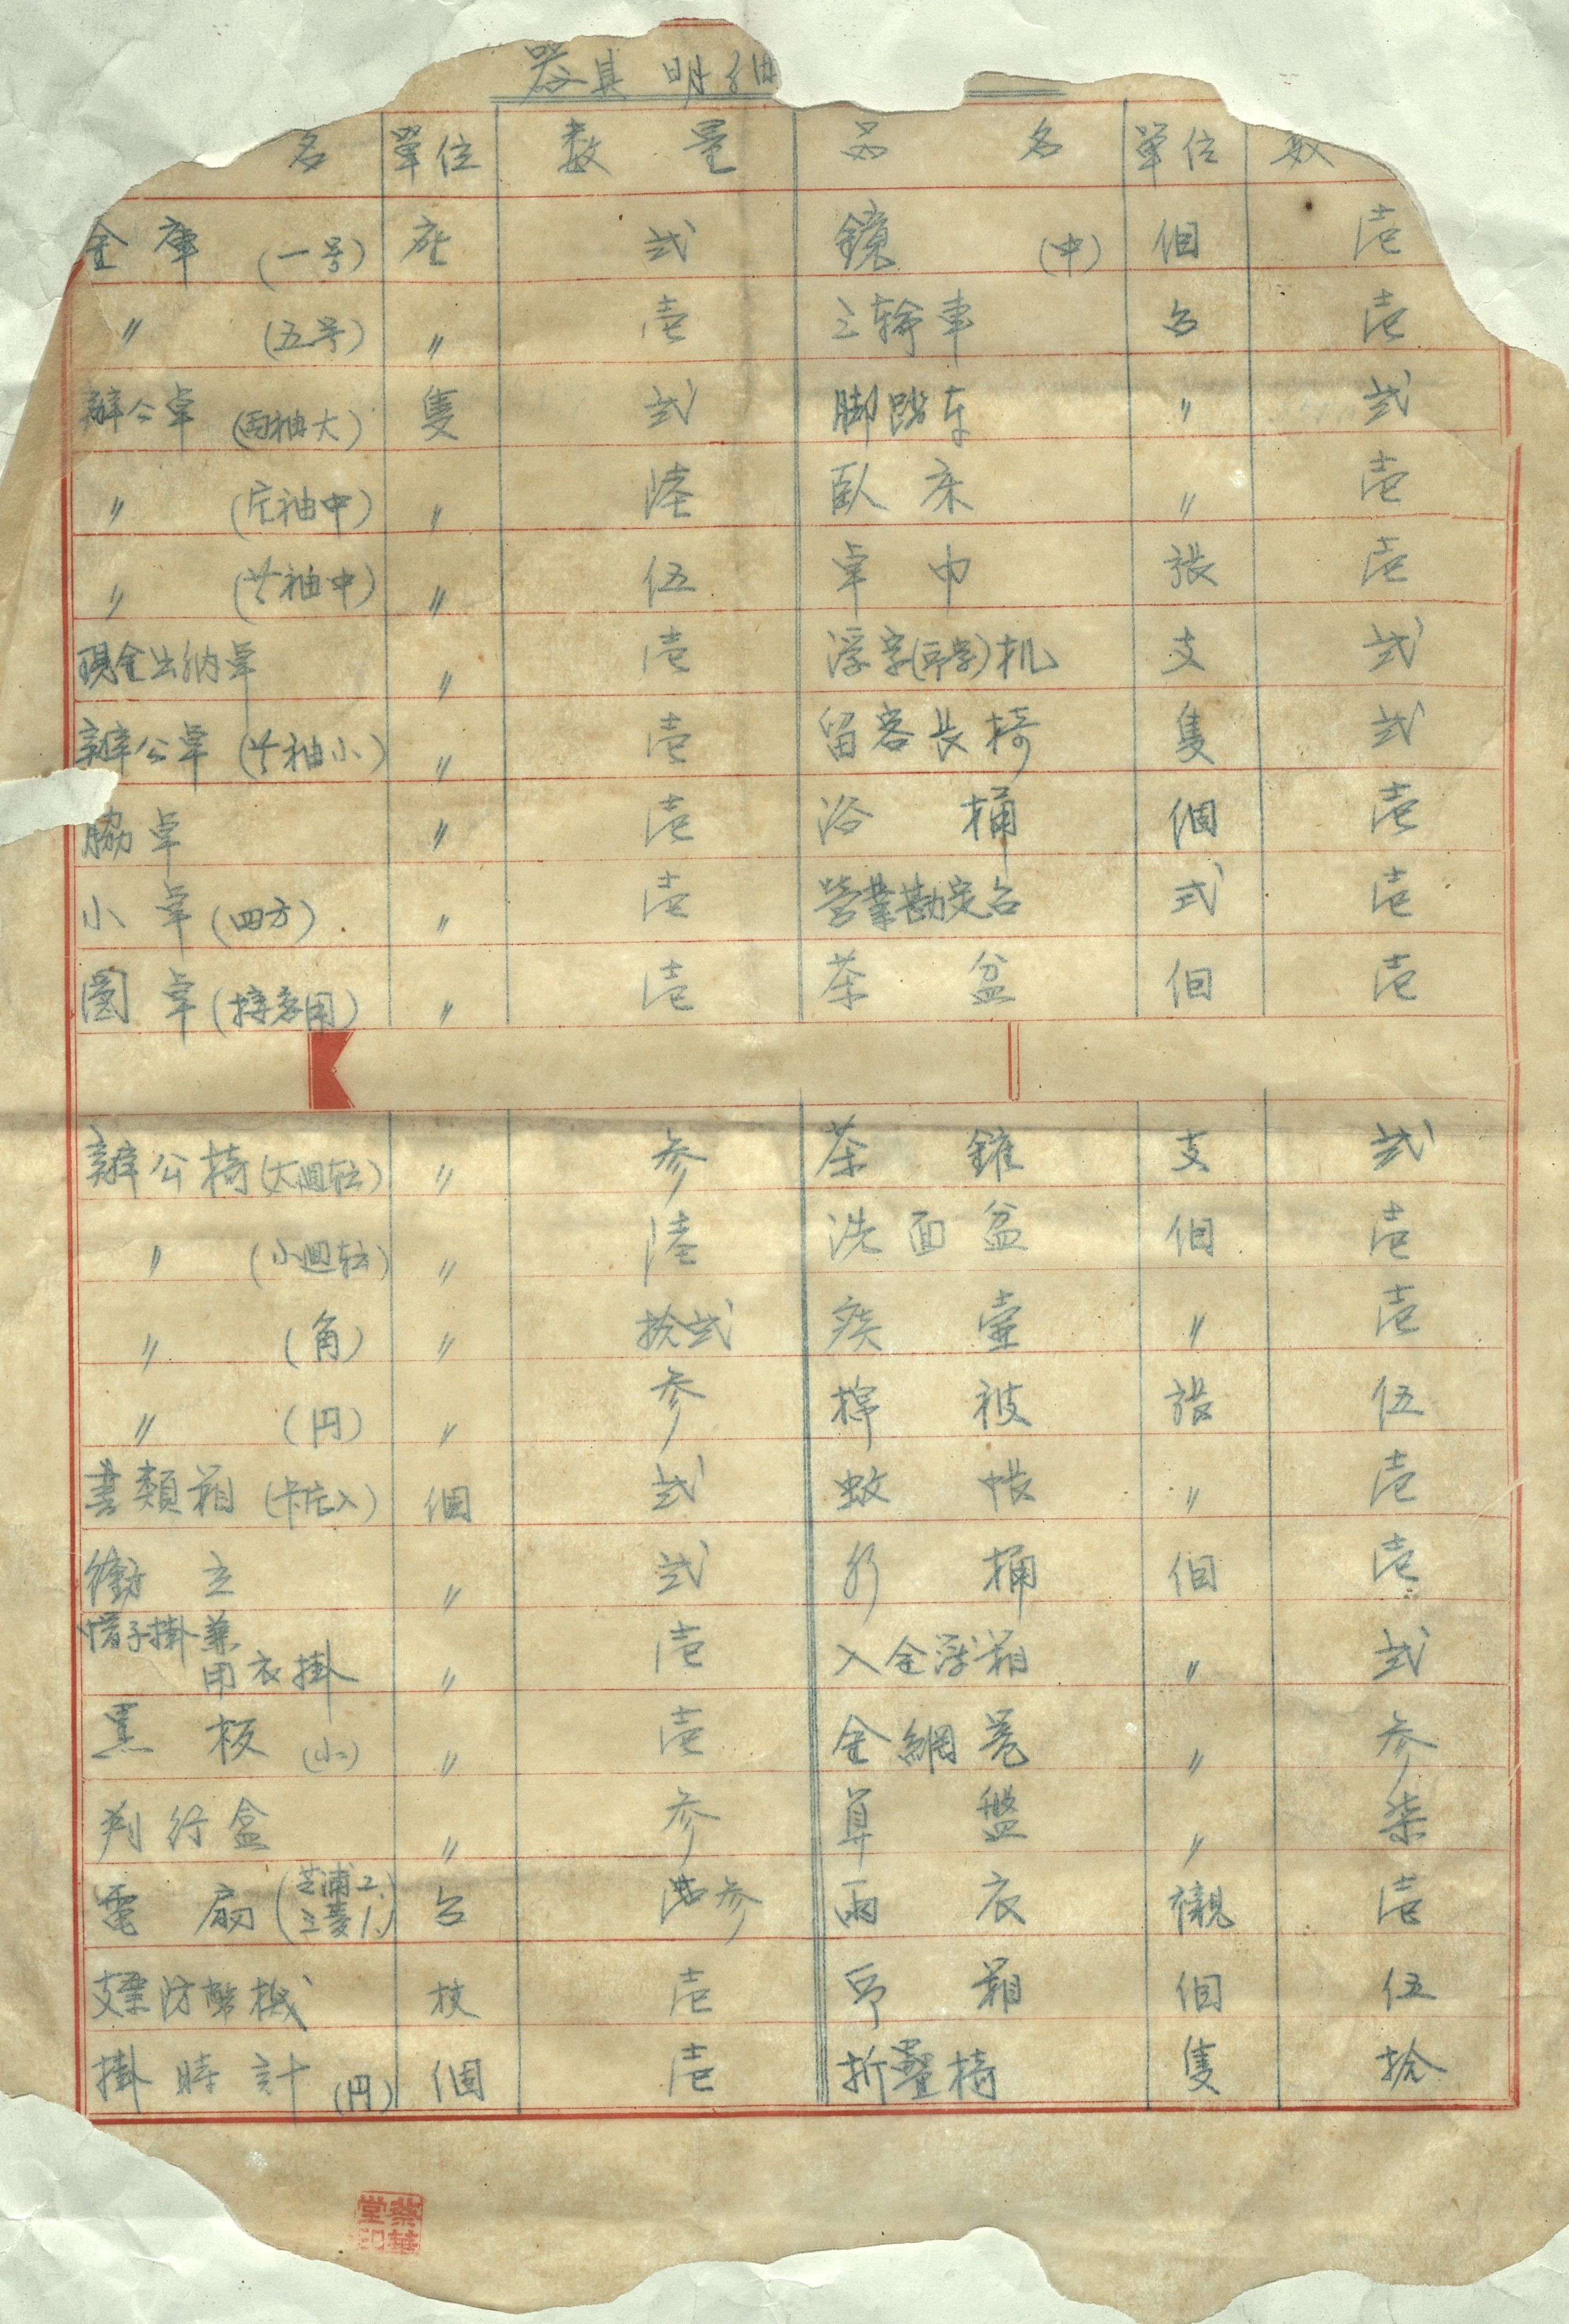 器具明細
名 單位 数量 品名 單位 数
金庫 (一号) 座 弍 鏡 (中) 個 壱
〃 (五号) 〃 壱 三輪車 台 壱
辦公卓 (両袖大) 隻 弍 脚踏车 〃 弍
〃 (片袖中) 〃 陸 臥床 〃 壱
〃 (片袖中) 〃 伍 卓巾 張 壱
現金出納卓 〃 壱 浮字机 支 弍
辦公卓 (片袖小) 〃 壱 留客長椅 隻 弍
脇卓 〃 壱 浴桶 個 壱
小卓 (四方) 〃 壱 営業勘定台 式 壱
圓卓 (接客用) 〃 壱 茶盆 個 壱
辦公椅 (大囬転) 〃 参 茶鑵 支 弍
〃 (小囬転) 〃 陸 洗面盆 個 壱
〃 (角) 〃 拾弍 痰壷 〃 壱
〃 (円) 〃 参 棉被 張 伍
書類箱 個 弍 蚊帳 〃 壱
衝立 〃 弍 水桶 個 壱
帽子掛兼用衣掛 〃 壱 入金浮箱 〃 弍
黒板 (小) 〃 壱 金網笼 〃 参
判行盒 〃 参 算盤 〃 柒
電扇 (芝浦2. 三菱1.) 台 参 雨衣 襯 壱
防弊機 枝 壱 印箱 個 伍
掛時計 (円) 個 壱 折疊椅 隻 拾
蔡華堂印